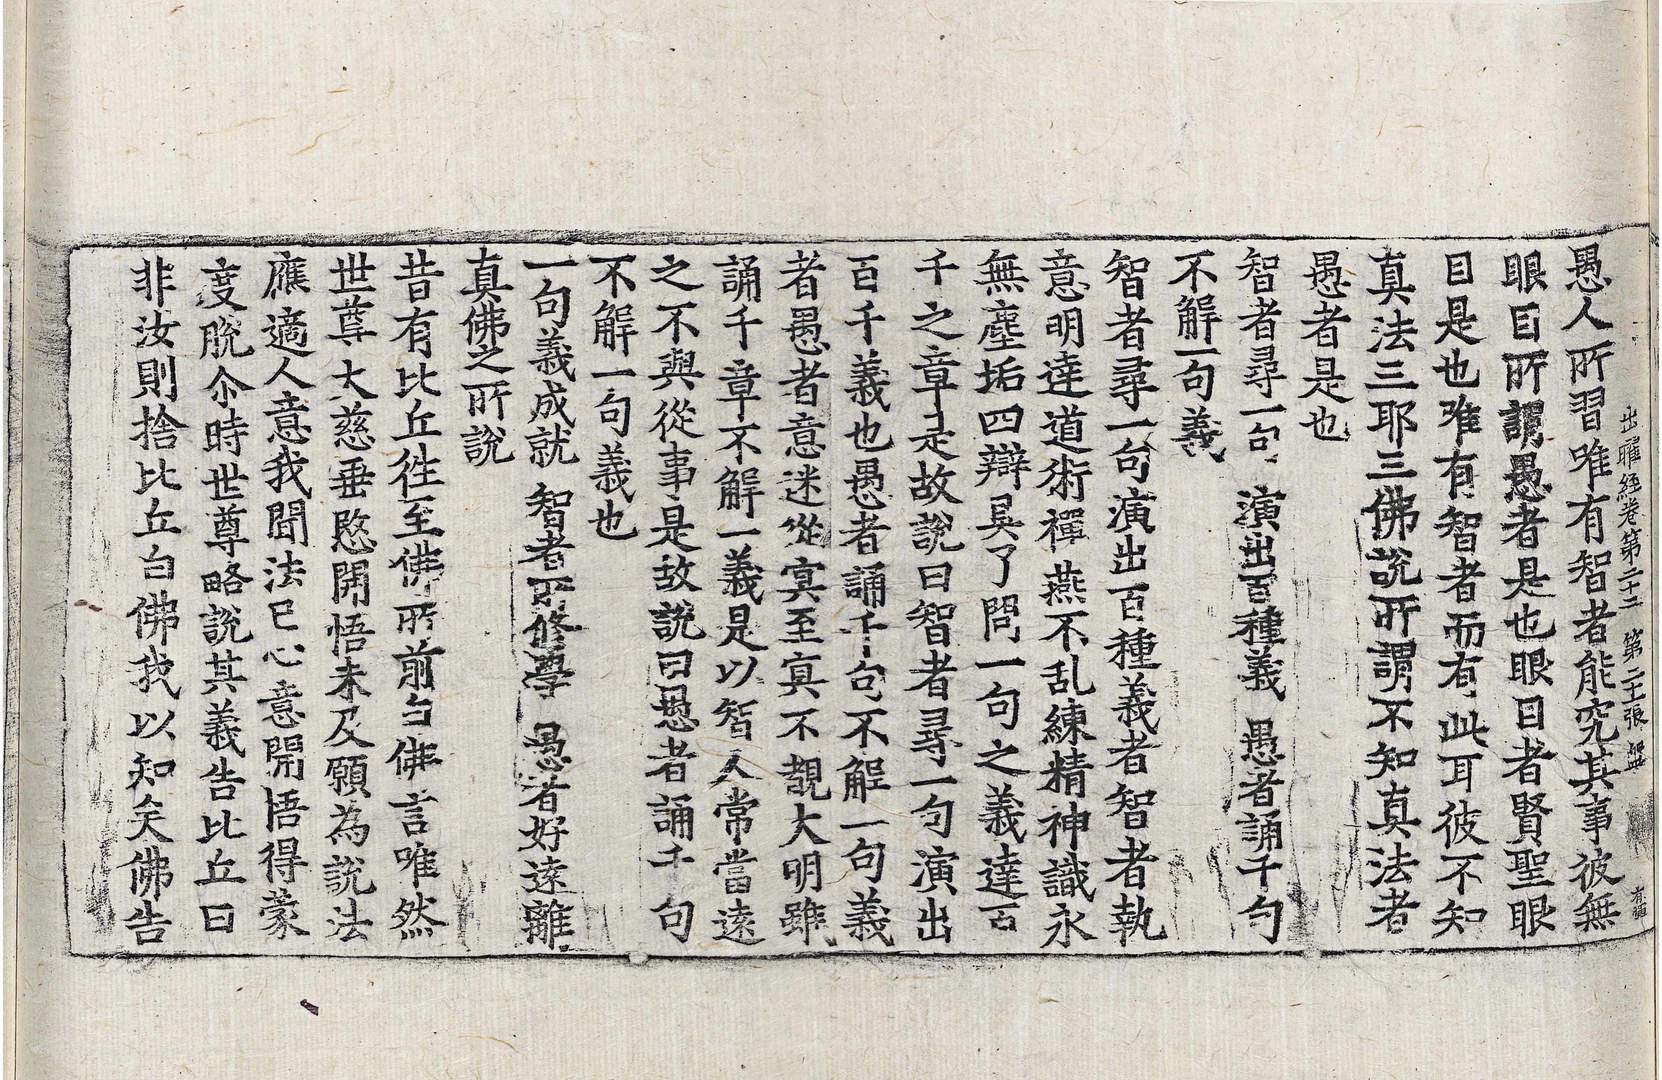 出曜經卷第二十二 第二十張 盤
愚人所習唯有智者能究其事彼無
眼目所謂愚者是也眼目者賢聖眼
目是也唯有智者而有此耳彼不知
真法三耶三佛說所謂不知真法者
愚者是也
智者尋一句 演出百種義 愚者誦千句
不解一句義
智者尋一句演出百種義者智者執
意明達道術禪燕不乱練精神識永
無塵垢四辯具了問一句之義達百
千之章是故說曰智者尋一句演出
百千義也愚者誦千句不解一句義
者愚者意迷從冥至冥不覩大明雖
誦千章不解一義是以智人常當遠
之不與從事是故說曰愚者誦千句
不解一句義也
一句義成就 智者所修學 愚者好遠離
真佛之所說
昔有比丘往至佛所前白佛言唯然
世尊大慈垂愍開悟未及願為說法
應適人意我聞法已心意開悟得蒙
度脫尒時世尊略說其義告比丘曰
非汝則捨比丘白佛我以知矣佛告